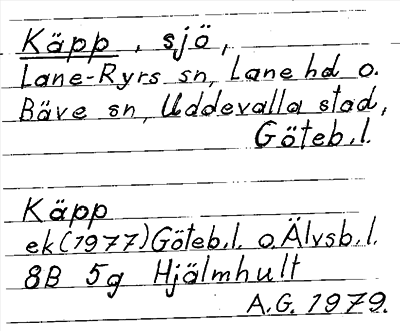 Käpp, sjö,
Lane-Ryrs sn, Lane hd o.
Bäve sn, Uddevalla stad,
Göteb.l.
Käpp
ek(1977)Göteb.l. o.Älvsb.l.
8B 5g Hjälmhult
A.G. 1979.